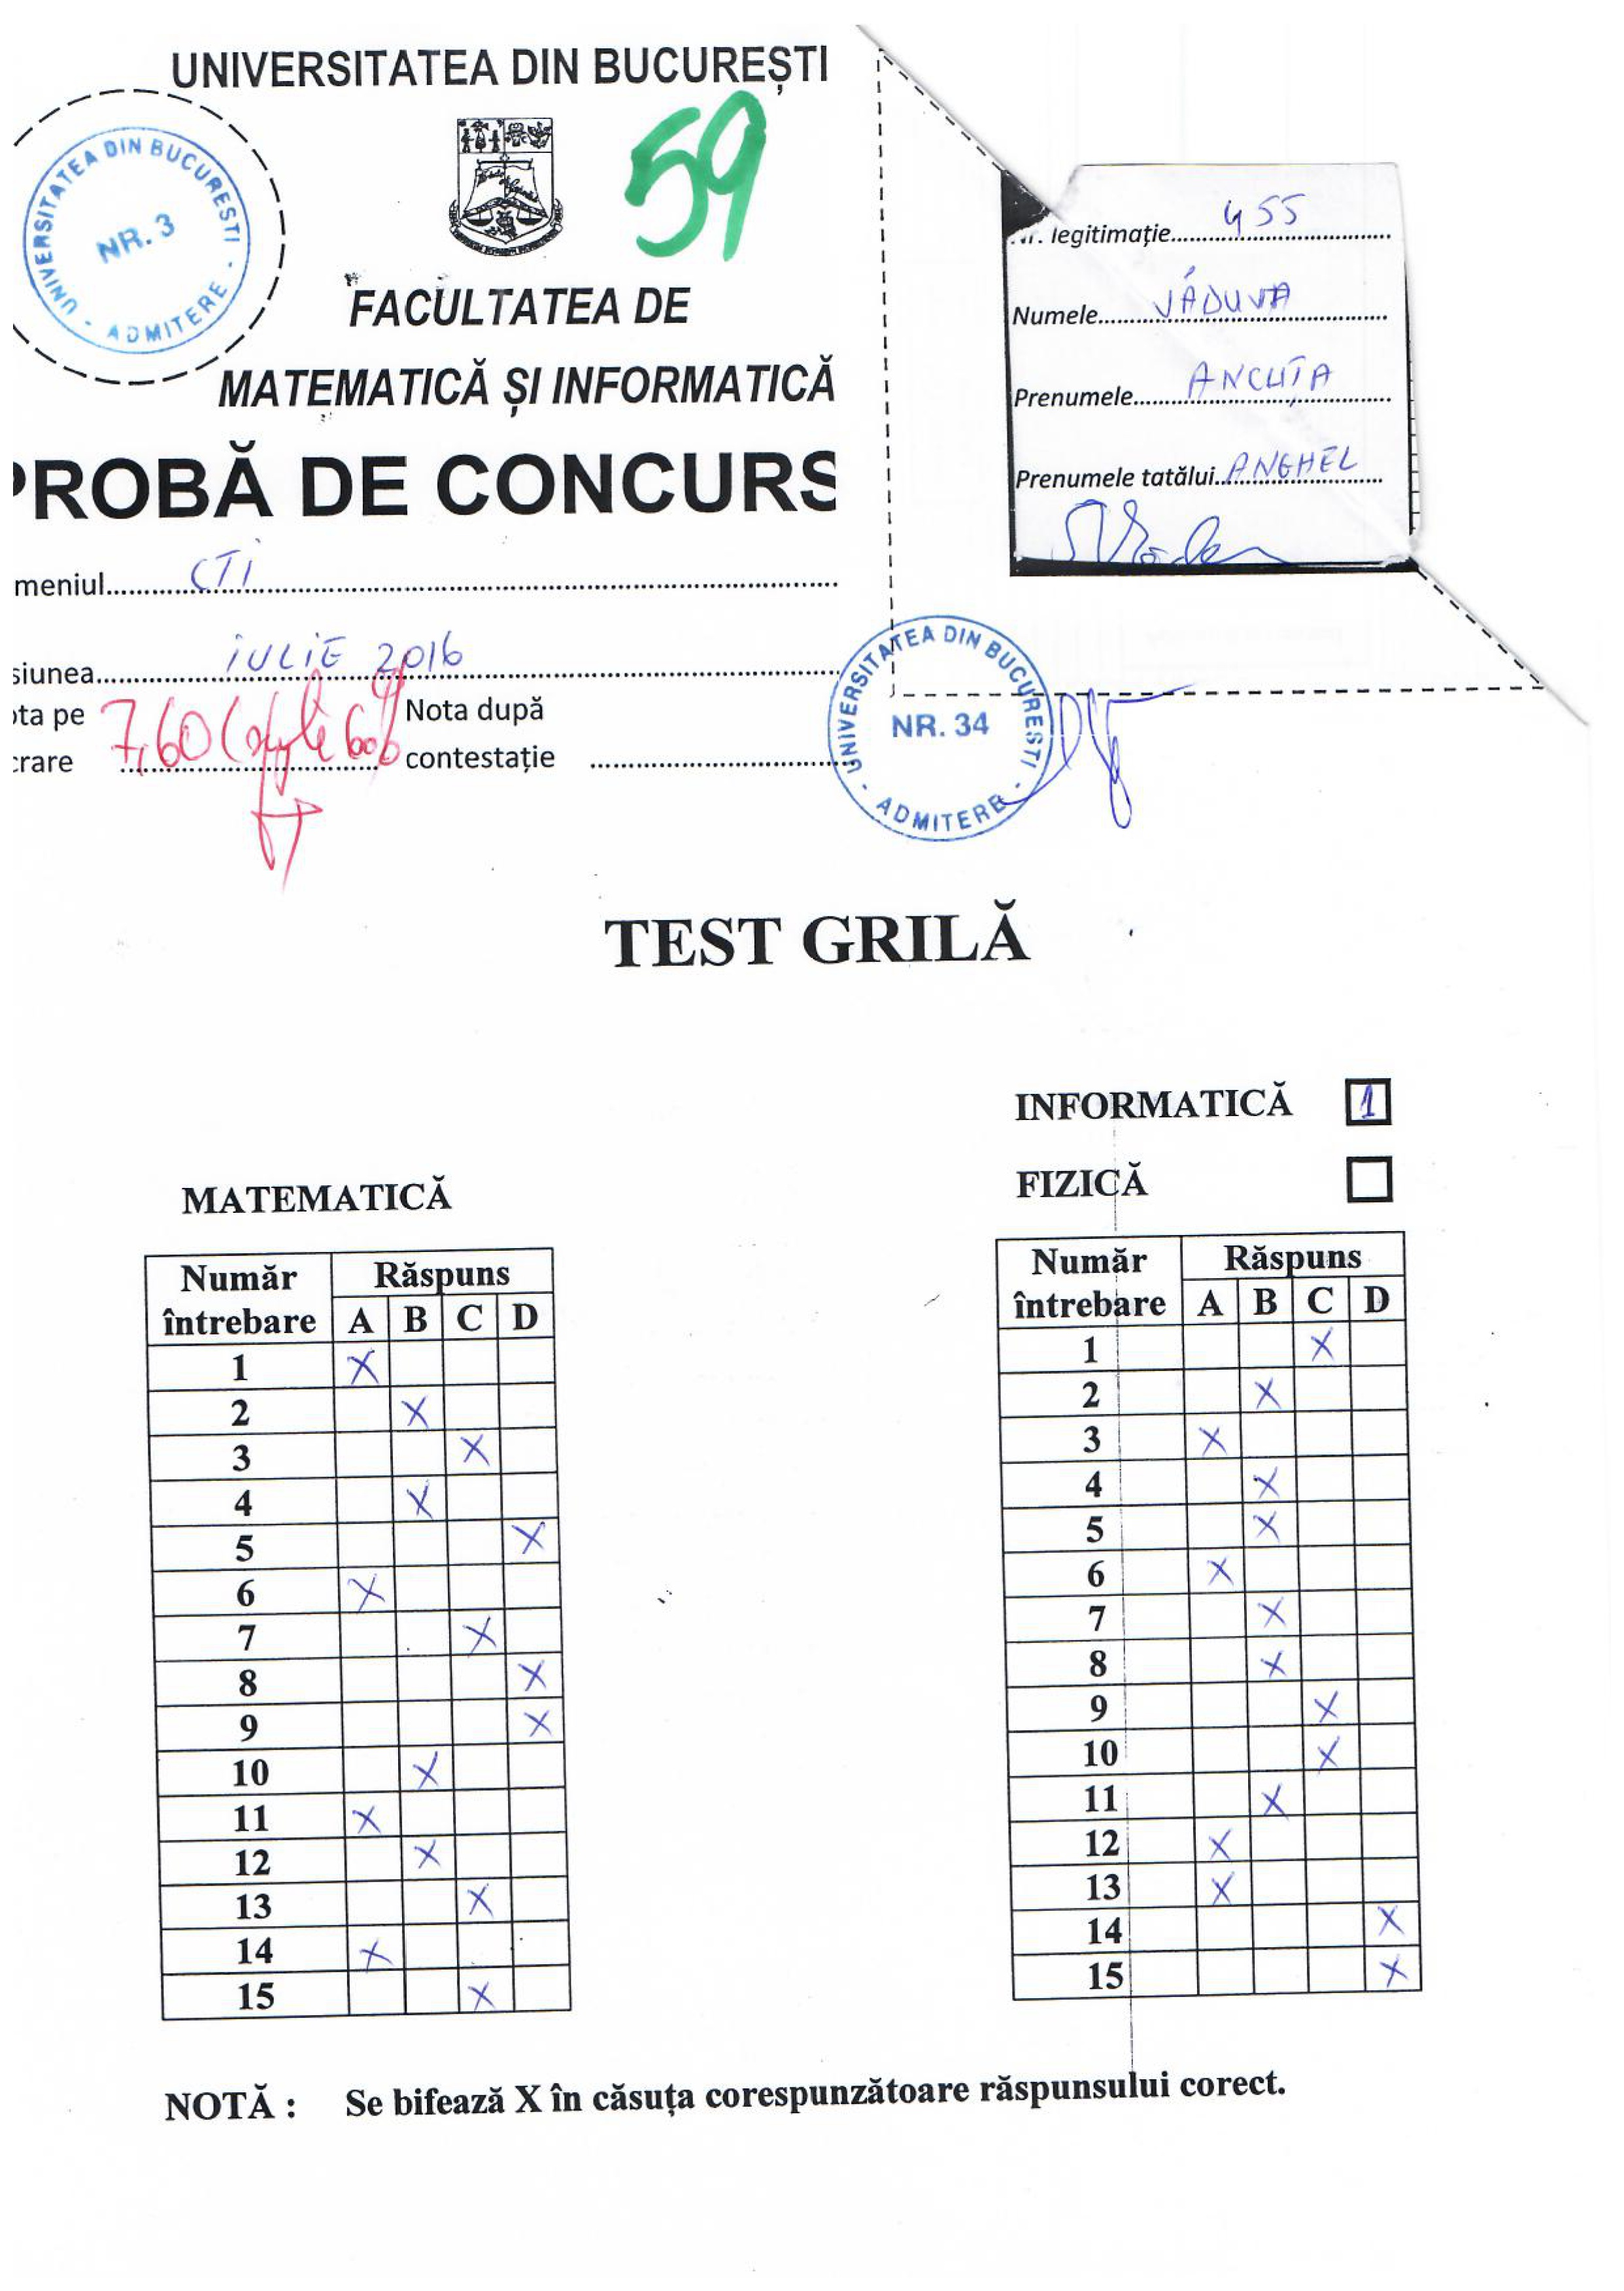 UNIVERSITATEA DIN BUCUREȘTI
UNIVERSITATEA DIN BUCURESTI - ADMITERE -
NR. 3
59
FACULTATEA DE
MATEMATICĂ ȘI INFORMATICĂ
PROBĂ DE CONCURS
meniul CTI
siunea iULIE 2016
ota pe
crare 7,60 (
Nota după
contestație
Nr. legitimație 455
Numele VĂDUVA
Prenumele ANCUȚA
Prenumele tatălui ANGHEL
UNIVERSITATEA DIN BUCURESTI - ADMITERE -
NR. 34
TEST GRILĂ
INFORMATICĂ 1
FIZICĂ
MATEMATICĂ
Număr întrebare Răspuns
A B C D
1 X
2 X
3 X
4 X
5 X
6 X
7 X
8 X
9 X
10 X
11 X
12 X
13 X
14 X
15 X
Număr întrebare Răspuns
A B C D
1 X
2 X
3 X
4 X
5 X
6 X
7 X
8 X
9 X
10 X
11 X
12 X
13 X
14 X
15 X
NOTĂ : Se bifează X în căsuța corespunzătoare răspunsului corect.